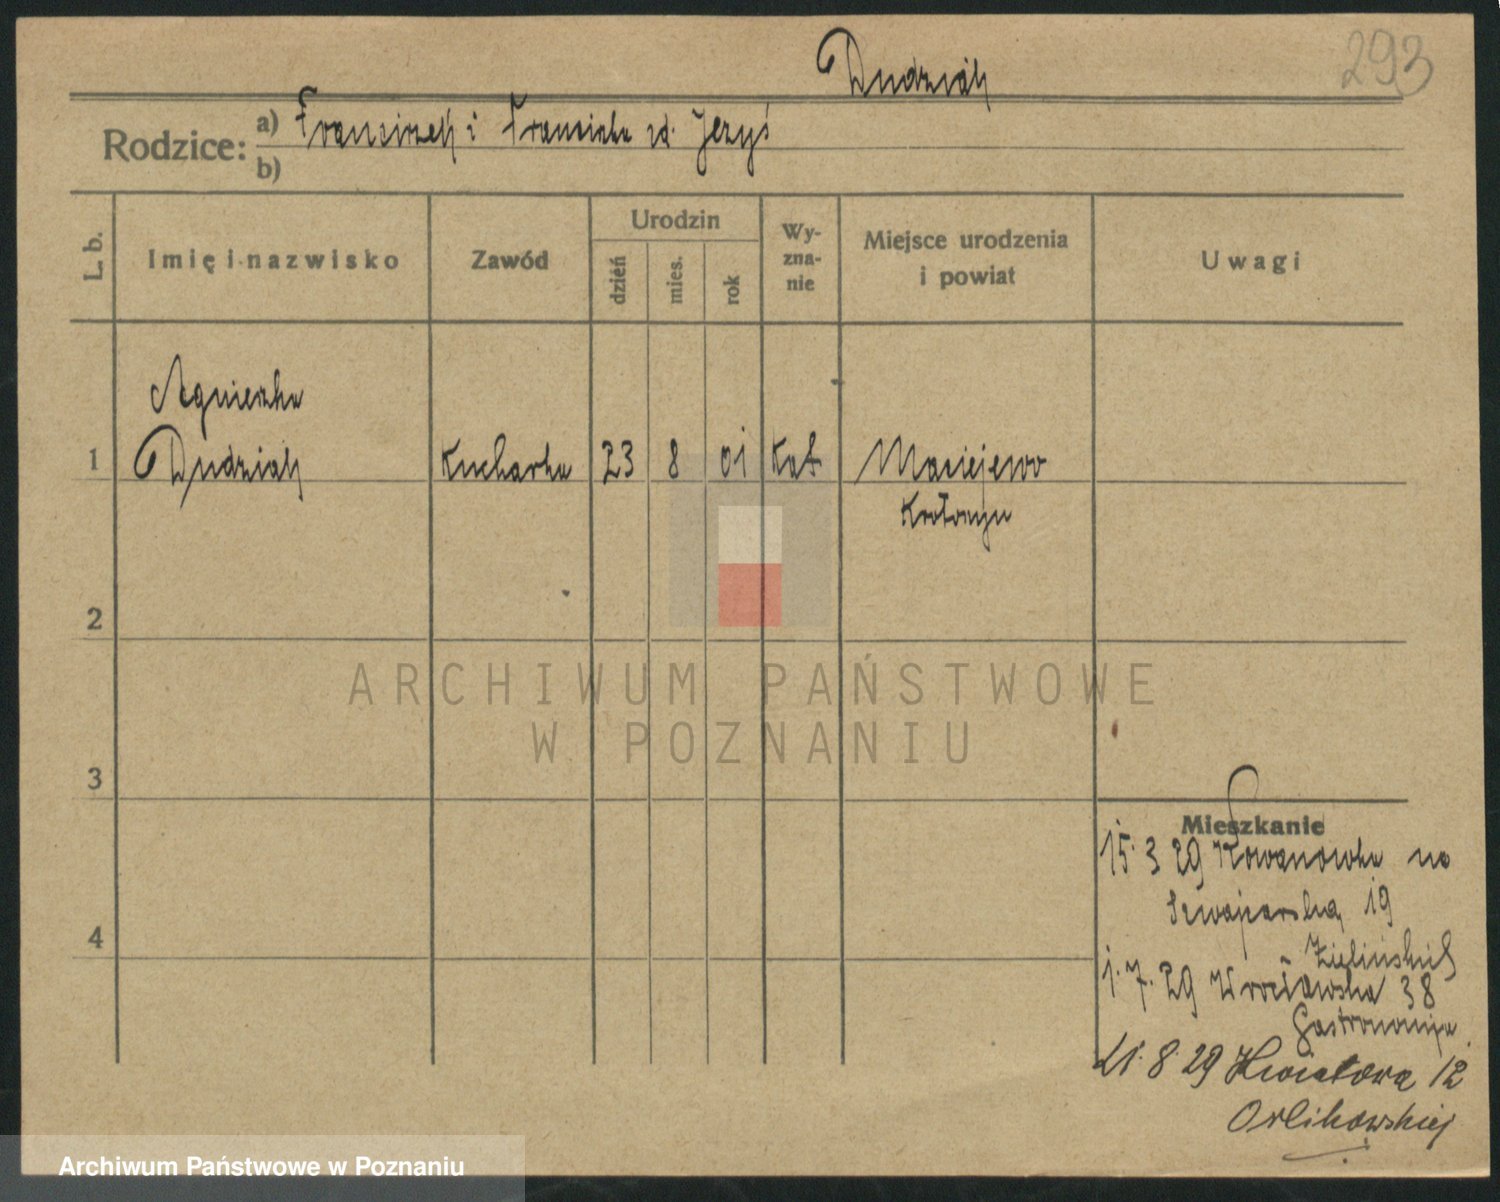 Dudziak
293
Rodzice: a) Franciszek i Franciszka zd. Jezyś
b)
L. b.
Imię i nazwisko
Zawód
Urodzin
dzień
mies.
rok
Wy-
zna-
nie
Miejsce urodzenia
i powiat
Uwagi
Agnieszka
1 Dudziak Kucharka 23 8 01 Kat Maciejewo
2
3
4
Mieszkanie
15. 3 29 Kowanówka na
Szwajcarską 19
Zielińskich
1. 7. 29 Wrocławska 38
Gastronomja
21. 8. 29 Kwiatowa 12
Orlikowskiej
ARCHIWUM PAŃSTWOWE
W POZNANIU
Archiwum Państwowe w Poznaniu